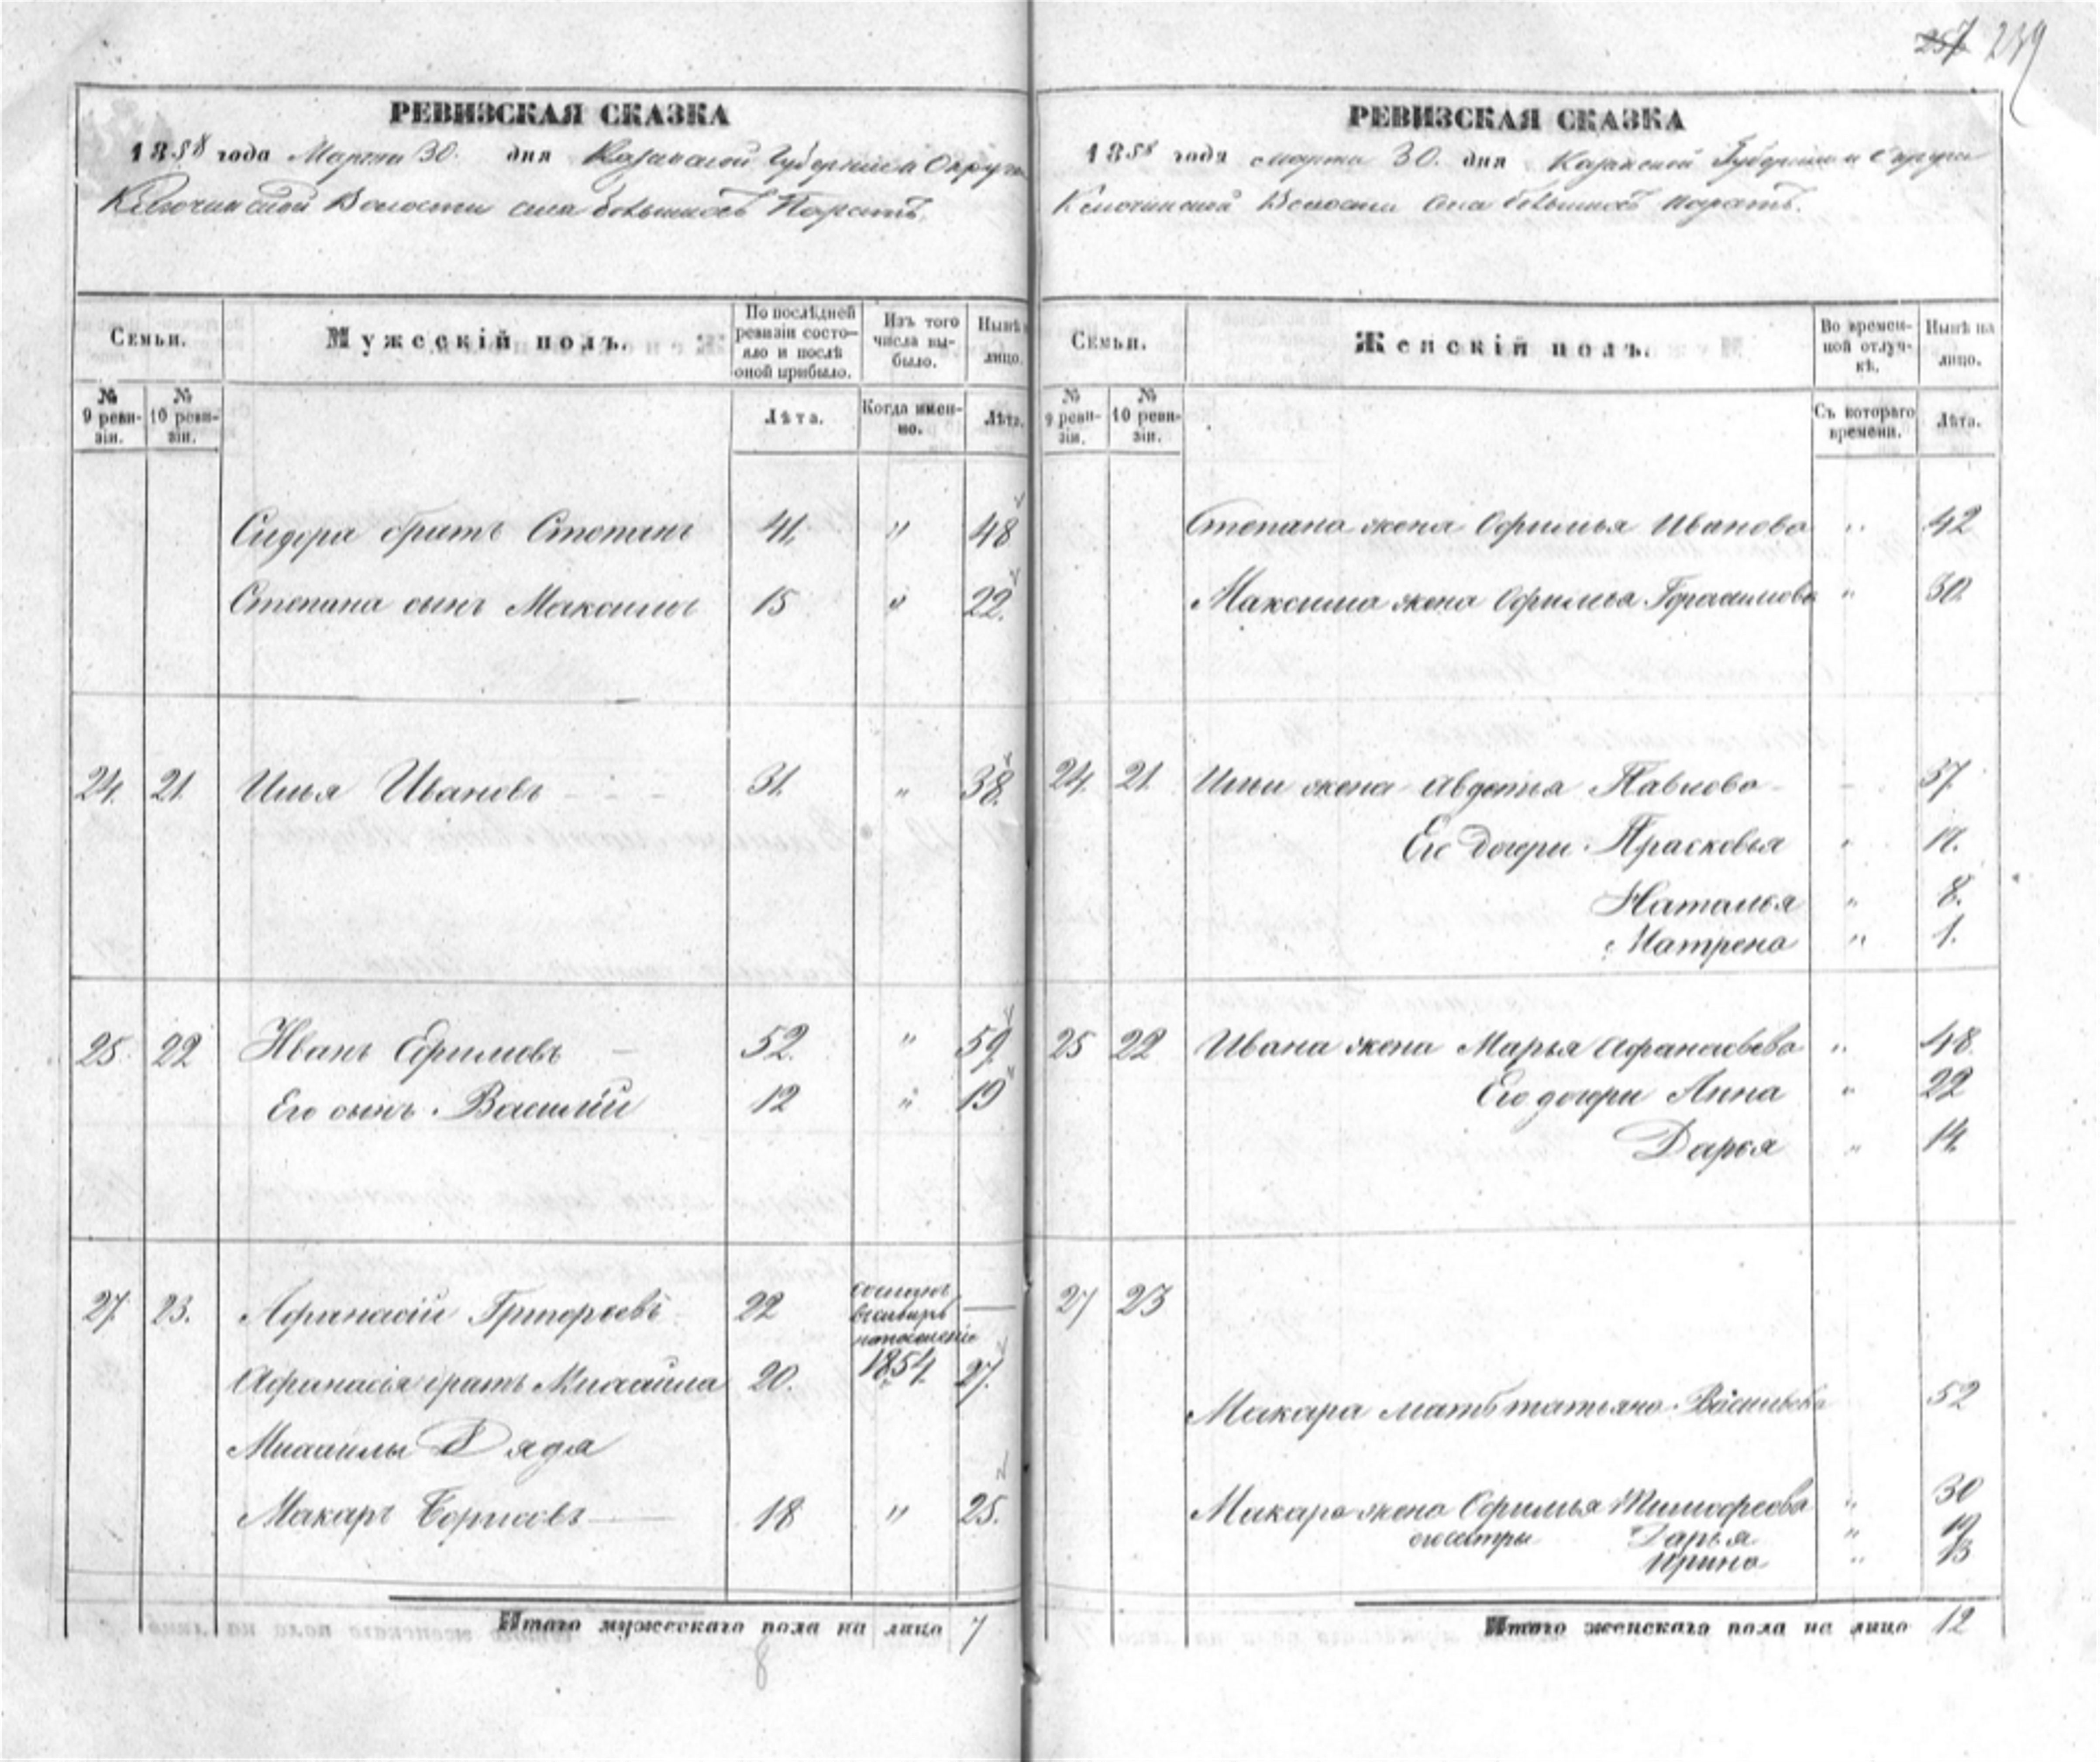 257 249
РЕВИЗСКАЯ СКАЗКА
1858 года Марта 30. дня Казанской Губерніи и Округа
Ключинской Волости села большихъ Паратъ.
Семьи.
Мужескій полъ.
По послѣдней ревизіи состояло и послѣ оной прибыло.
Изъ того числа выбыло.
Нынѣ на лицо.
№ 9 ревизіи.
№ 10 ревизіи.
Лѣта.
Когда именно.
Лѣта.
Сидора братъ Степанъ 41 " 48
Степана сынъ Максимъ 15 " 22.
24. 21. Илья Ивановъ - - - 31. " 38.
25. 22 Иванъ Ефимовъ — 52. " 59.
Его сынъ Василий 12 " 19
27. 23. Афанасій Григорьевъ 22 сосланъ в сибирь на поселеніе 1854. —
Афанасія братъ Михаила 20. 27.
Михаилы Дядя
Макаръ Борисовъ — 18 " 25.
Итого мужескаго пола на лицо 7
8
РЕВИЗСКАЯ СКАЗКА
1858 года марта 30. дня Казанской Губерніи и Округа
Ключинской Волости села большихъ Паратъ.
Семьи.
Женскій полъ.
Во временной отлучкѣ.
Нынѣ на лицо.
№ 9 ревизіи.
№ 10 ревизіи.
Съ котораго времени.
Лѣта.
Степана жена Офимья Иванова " 42
Максима жена Офимья Герасимова " 30.
24. 21. Ильи жена Авдотья Павлова - - 37.
Его дочери Прасковья " 17.
Наталья " 8.
Матрена " 1.
25 22 Ивана жена Марья Афанасьева " 48.
Его дочери Анна " 22
Дарья " 14.
27 23
Макара мать татьяна Васильева 52
Макара жена Офимья Тимофеева " 30
его сестры Дарья " 19
Ирина " 13
Итого женскаго пола на лицо 12